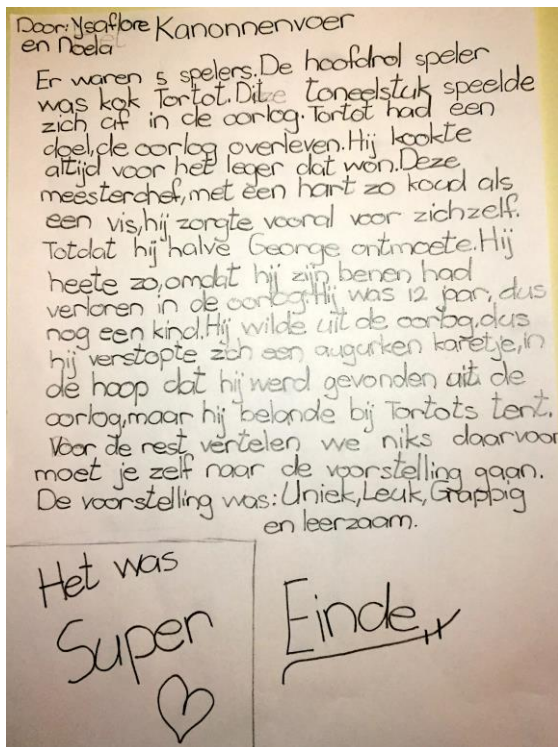 Door: Ysaflore Kanonnenvoer
en Noela
Er waren 5 spelers. De hoofdrol speler
was kok Tortot. Ditze toneelstuk speelde
zich af in de oorlog. Tortot had een
doel, de oorlog overleven. Hij kookte
altijd voor het leger dat won. Deze
meesterchef, met een hart zo koud als
een vis, hij zorgte vooral voor zichzelf.
Totdat hij halve George ontmoete. Hij
heete zo, omdat hij zijn benen had
verloren in de oorlog. Hij was 12 jaar, dus
nog een kind. Hij wilde uit de oorlog, dus
hij verstopte zich een augurken karetje, in
de hoop dat hij werd gevonden uit de
oorlog, maar hij belande bij Tortots tent.
Voor de rest vertelen we niks daarvoor
moet je zelf naar de voorstelling gaan.
De voorstelling was: Uniek, Leuk, Grappig
en leerzaam.
Het was
Super
Einde